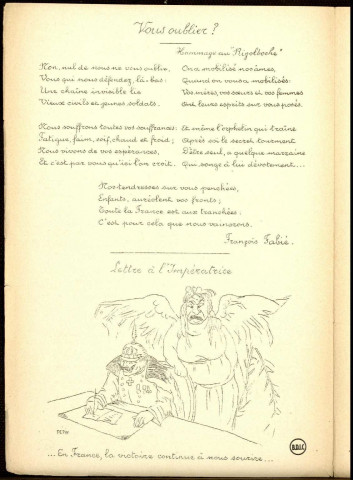 Vous oublier?
Hommage au "Rigolboche"
Non, nul de nous ne vous oublie,
Vous qui nous défendez, là-bas:
Une chaîne invisible lie
Vieux civils et jeunes soldats.
Nous souffrons toutes vos souffrances:
Fatigue, faim, soif, chaud et froid;
Nous vivons de vos espérances,
Et c'est par vous qu'ici l'on croit.
On a mobilisé nos âmes,
Quand on vous a mobilisés:
Vos mères, vos sœurs et vos femmes
Ont leurs esprits sur vous posés.
Et même l'orphelin qui traîne
Après soi le secret tourment
D'être seul, a quelque marraine
Qui songe à lui dévotement...
Nos tendresses sur vous penchées,
Enfants, auréolent vos fronts;
Toute la France est aux tranchées:
C'est pour cela que nous vaincrons.
François Fabié.
Lettre à l'Impératrice
B.D.I.C
...En France, la victoire continue à nous sourire...